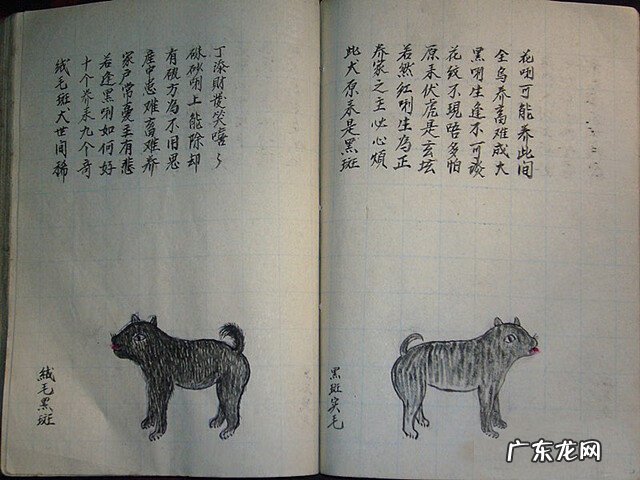 絨毛斑犬世间稀
十个养来九个奇
若逢黑咧如何好
家户常憂主有悲
產中患难畜难养
有砚方為不旧思
硃砂咧上能除却
丁添財发笑嘻々
絨毛黑斑
此犬原来是黑斑
养家之主必心煩
若然红咧生為正
原来伏虎是玄坛
花纹不现唔多怕
黑咧生逢不可谈
全乌养畜难成大
花咧可能养此间
黑斑尖毛
广东龙网